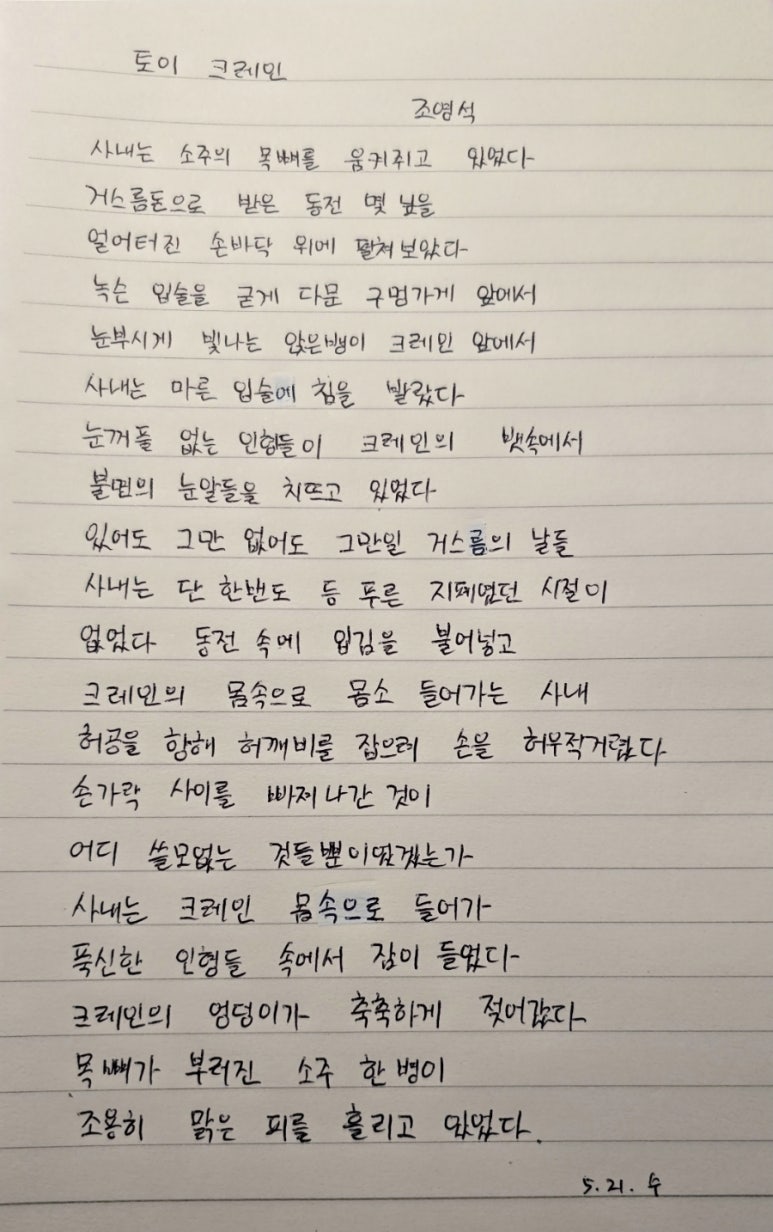 토이 크레인
조영석
사내는 소주의 목뼈를 움켜쥐고 있었다
거스름돈으로 받은 동전 몇 닢을
얼어터진 손바닥 위에 펼쳐보았다
녹슨 입술을 굳게 다문 구멍가게 앞에서
눈부시게 빛나는 앉은뱅이 크레인 앞에서
사내는 마른 입술에 침을 발랐다
눈꺼풀 없는 인형들이 크레인의 뱃속에서
불면의 눈알들을 치뜨고 있었다
있어도 그만 없어도 그만일 거스름의 날들
사내는 단 한번도 등 푸른 지폐였던 시절이
없었다 동전 속에 입김을 불어넣고
크레인의 몸속으로 몸소 들어가는 사내
허공을 향해 허깨비를 잡으려 손을 허우적거렸다
손가락 사이를 빠져나간 것이
어디 쓸모없는 것들뿐이었겠는가
사내는 크레인 몸속으로 들어가
푹신한 인형들 속에서 잠이 들었다
크레인의 엉덩이가 축축하게 젖어갔다
목뼈가 부러진 소주 한 병이
조용히 맑은 피를 흘리고 있었다.
5. 21. 수